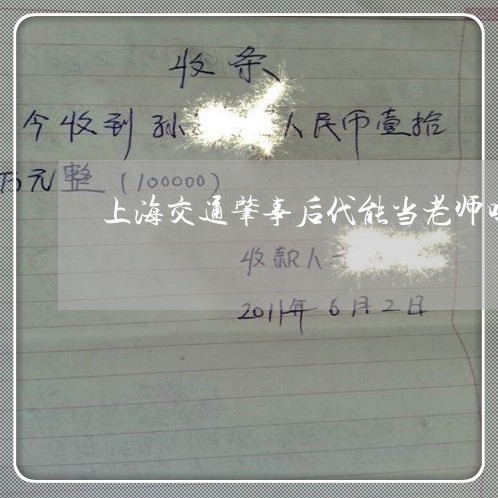 收条
今收到孙 人民币壹拾
万元整(100000)
上海交通肇事后代能当老师
收款人
2011年6月2日